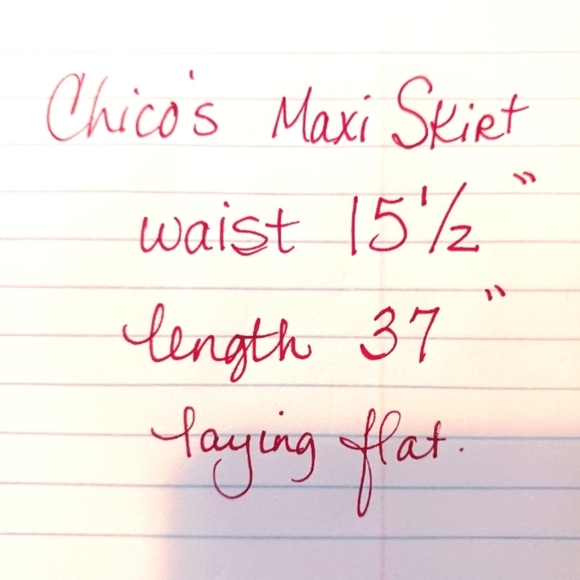 Chico's Maxi Skirt
waist 15 1/2 "
length 37 "
laying flat.